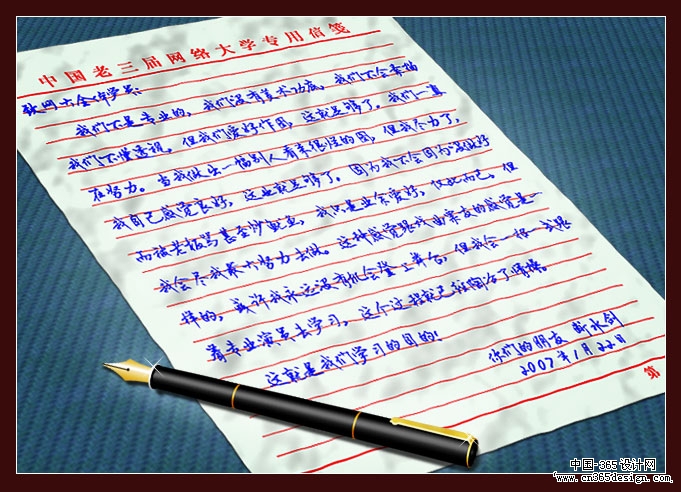 中国老三届网络大学专用信笺
致网大全体学员:
我们不是专业的,我们没有美术功底,我们不会素描
我们不懂透视,但我们爱好作图,这就足够了。我们一直
在努力。当我做出一幅别人看来很怪的图,但我尽力了,
我自己感觉良好,这也就足够了。因为我不会因为没做好
而被老板骂甚至炒鱿鱼,我只是业余爱好,仅此而已。但
我会尽我最大努力去做。这种感觉跟戏曲票友的感觉是一
样的,或许我永远没有机会登上舞台,但我会一招一式跟
着专业演员去学习,这个过程就已经陶冶了情操。
这就是我们学习的目的!
你们的朋友 断水剑
2007年1月22日
第
中国·365设计网
www.cn365design.com